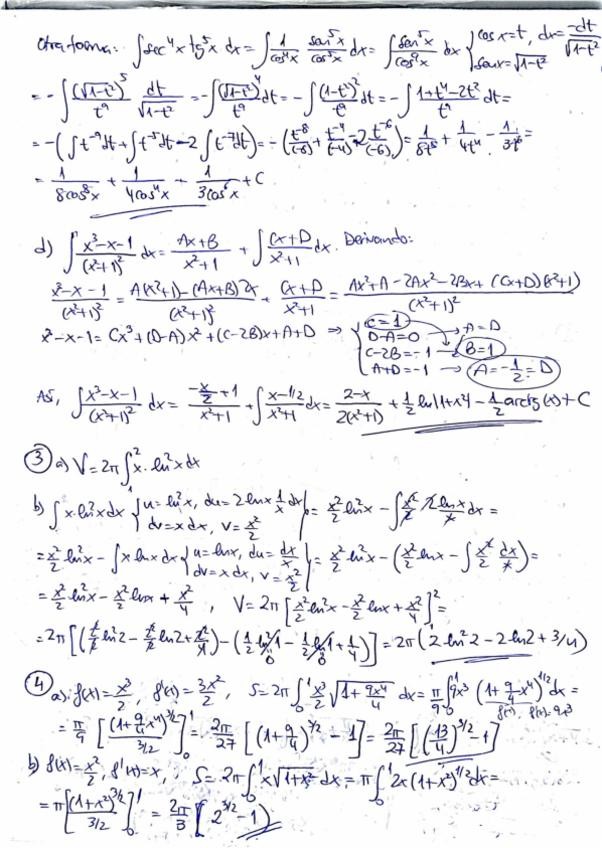 Otra forma: ∫sec⁴x tg⁵x dx = ∫ 1/cos⁴x sen⁵x/cos⁵x dx = ∫ sen⁵x/cos⁹x dx { cos x = t, dx = -dt/√1-t² senx = √1-t²
= -∫ (√1-t²)⁵/t⁹ dt/√1-t² = -∫ (√1-t²)⁴/t⁹ dt = -∫ (1-t²)²/t⁹ dt = -∫ 1+t⁴-2t²/t⁹ dt =
= -(∫t⁻⁹dt + ∫t⁻⁵dt - 2∫t⁻⁷dt) = -(t⁻⁸/(-8) + t⁻⁴/(-4) - 2 t⁻⁶/(-6)) = 1/8t⁸ + 1/4t⁴ - 1/3t⁶ =
= 1/8cos⁸x + 1/4cos⁴x - 1/3cos⁶x + C
d) ∫ x³-x-1/(x²+1)² dx = Ax+B/x²+1 + ∫ Cx+D/x²+1 dx. Derivando:
x³-x-1/(x²+1)² = A(x²+1)-(Ax+B)2x/(x²+1)² + Cx+D/x²+1 = Ax²+A-2Ax²-2Bx+(Cx+D)(x²+1)/(x²+1)²
x³-x-1 = Cx³+(D-A)x²+(C-2B)x+A+D ⇒ { C=1
D-A=0 → A=D
C-2B=-1 → B=1
A+D=-1 → A=-1/2=D
Así, ∫ x³-x-1/(x²+1)² dx = -x/2+1/x²+1 + ∫ x-1/2/x²+1 dx = 2-x/2(x²+1) + 1/2 ln|1+x²| - 1/2 arctg(x) + C
③ a) V = 2π ∫₁² x·ln²x dx
b) ∫x·ln²x dx { u=ln²x, du=2lnx 1/x dx dv=x dx, v=x²/2 } = x²/2 ln²x - ∫ x²/2 2lnx/x dx =
= x²/2 ln²x - ∫x lnx dx { u=lnx, du=dx/x dv=x dx, v=x²/2 } = x²/2 ln²x - (x²/2 lnx - ∫ x²/2 dx/x) =
= x²/2 ln²x - x²/2 lnx + x²/4 , V = 2π [x²/2 ln²x - x²/2 lnx + x²/4]₁² =
= 2π[(4/2 ln²2 - 4/2 ln2 + 4/4) - (1/2 ln²1 - 1/2 ln1 + 1/4)] = 2π(2ln²2 - 2ln2 + 3/4)
④ a) f(x) = x³/2, f'(x) = 3x²/2, S = 2π ∫₀¹ x³/2 √1+9x⁴/4 dx = π/9 ∫₀¹ 9x³ (1+9/4 x⁴)^1/2 dx =
f(x), f'(x)=9x³
= π/9 [(1+9/4 x⁴)^3/2/3/2]₀¹ = 2π/27 [(1+9/4)^3/2 - 1] = 2π/27 [(13/4)^3/2 - 1]
b) f(x) = x²/2, f'(x) = x, S = 2π ∫₀¹ x√1+x² dx = π ∫₀¹ 2x(1+x²)^1/2 dx =
= π [(1+x²)^3/2/3/2]₀¹ = 2π/3 [2^3/2 - 1)